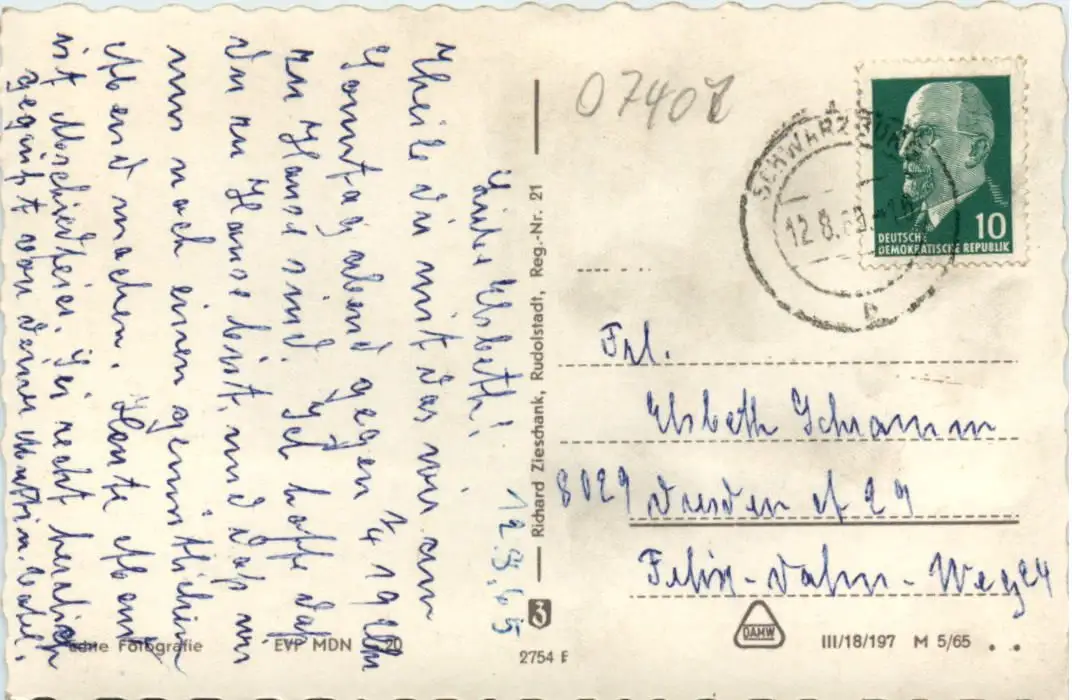 12.8.65
Liebe Elsbeth!
Theile dir mit das wir am
Sonntag abend gegen ¾ 19 Uhr
zu Hause sind. Ich hoffe daß
du zu Hause bist, und daß wir
uns noch einen gemütlichen
Abend machen. Heute Abend
ist Abschiedfeier. Sei recht herzlich
gegrüßt von deinem Martin.
07407
SCHWARZBURG
12.8.65
b
10
DEUTSCHE
DEMOKRATISCHE REPUBLIK
Frl.
Elsbeth Schramm
8029 Dresden A 29
Felix-Dahn-Weg 24
Richard Zieschank, Rudolstadt, Reg.-Nr. 21
3
echte Fotografie
EVP MDN 20
2754 E
DAMW
III/18/197 M 5/65